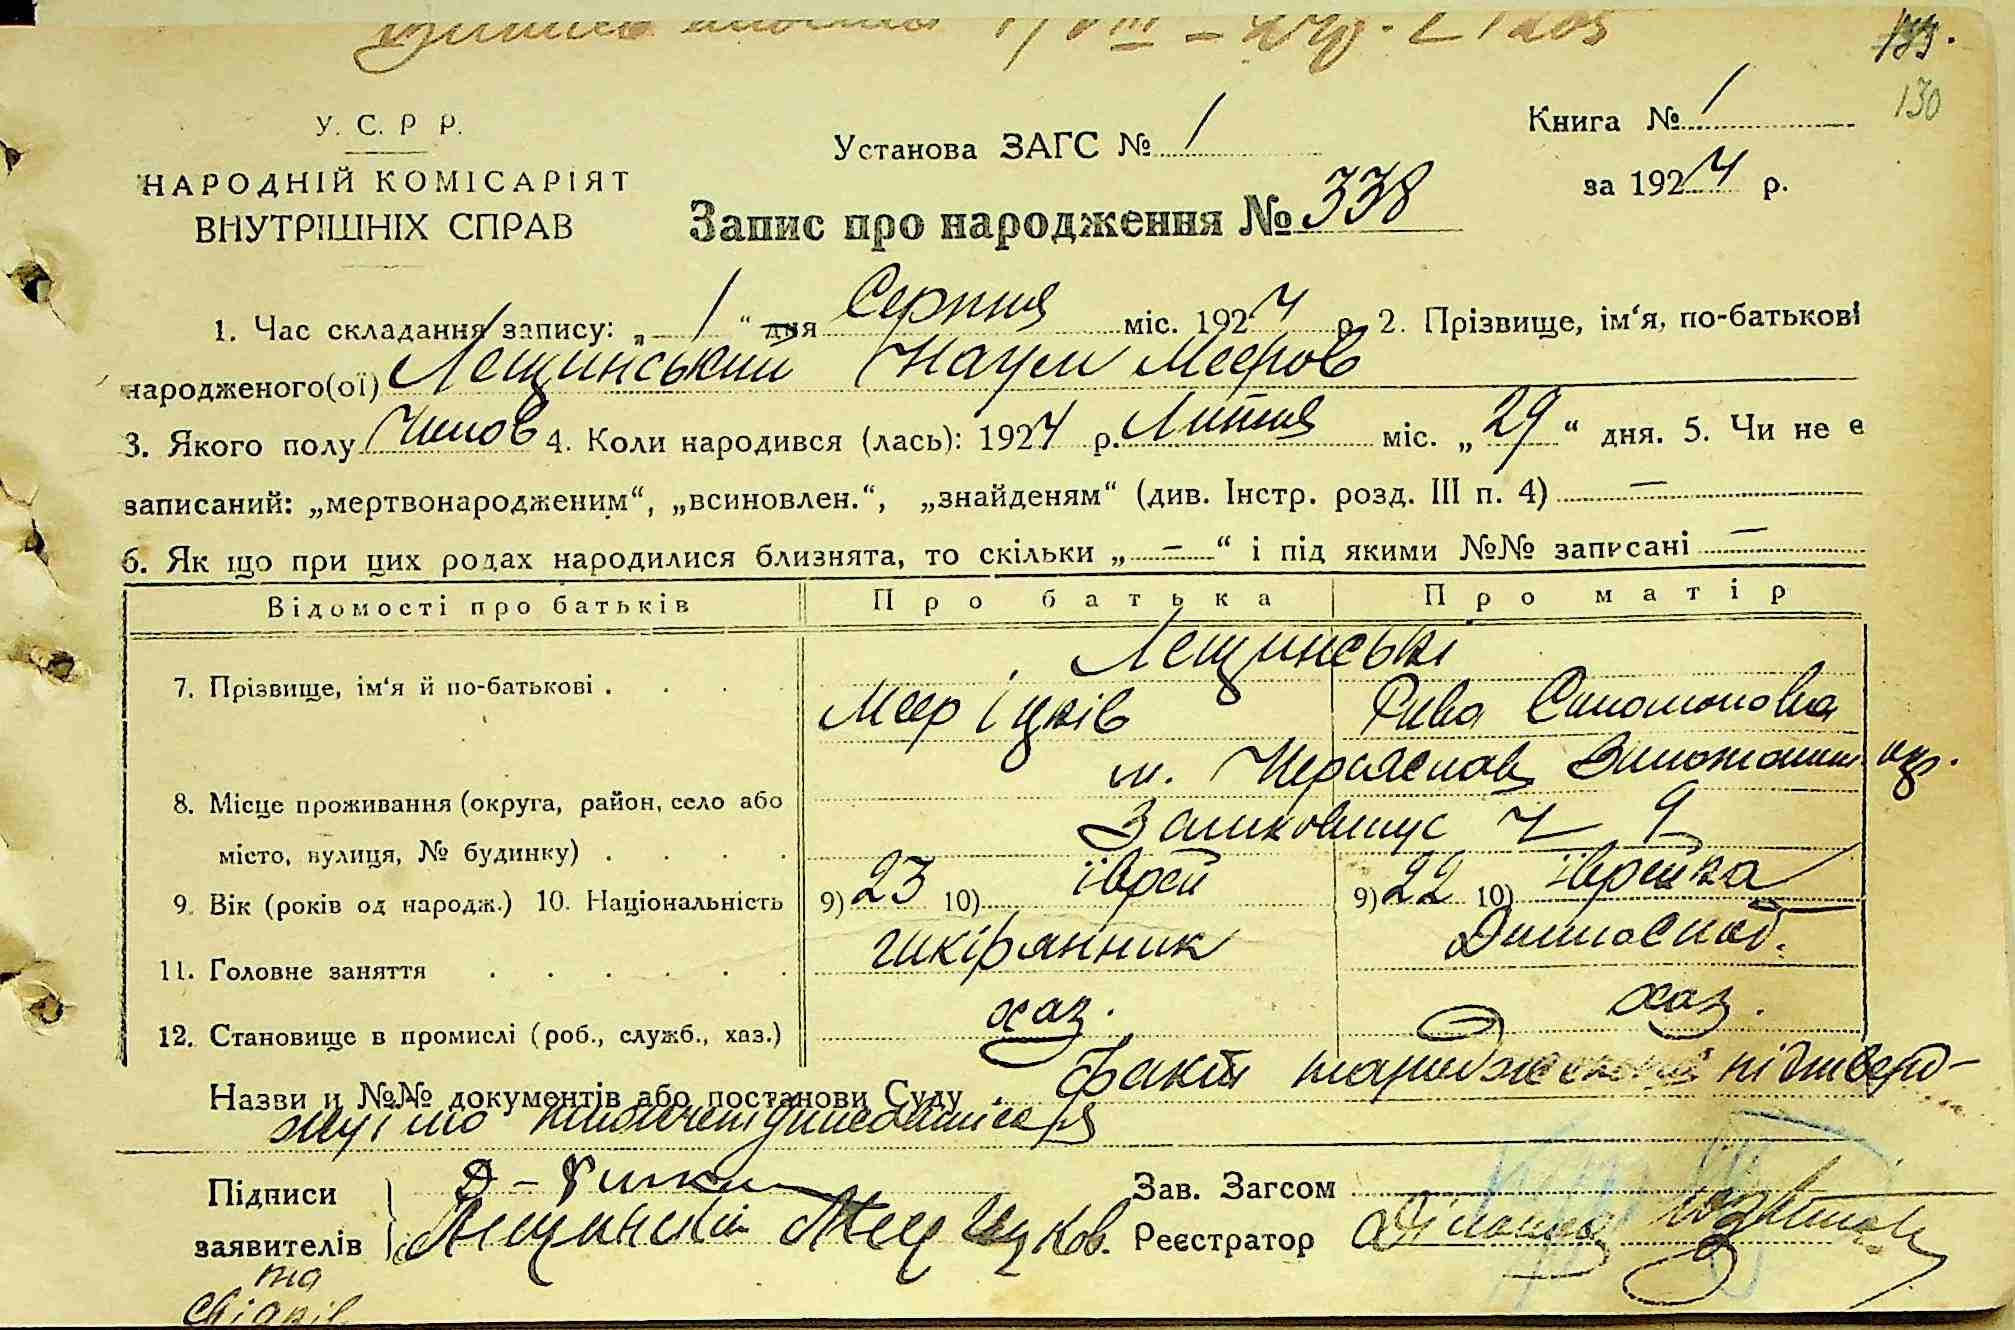 133.
130
У. С. Р Р.
НАРОДНІЙ КОМІСАРІЯТ
ВНУТРІШНІХ СПРАВ
Установа ЗАГС № 1
Книга № 1
за 1924 р.
Запис про народження № 338
1. Час складання запису: „ 1 “ дня Серпня міс. 1924 р. 2. Прізвище, ім‘я, по-батькові
народженого(ої) Лещинський Наум Мееров
3. Якого полу Чолов 4. Коли народився (лась): 1924 р. Липня міс. „ 29 “ дня. 5. Чи не є
записаний: „мертвонародженим“, „всиновлен.“, „знайденям“ (див. Інстр. розд. III п. 4) —
6. Як що при цих родах народилися близнята, то скільки „ - “ і під якими №№ записані —
Відомості про батьків Про батька Про матір
Лещинські
7. Прізвище, ім‘я й по-батькові . . . . Меер Іцків Рива Соломоновна
м. Переяслав окр.
8. Місце проживання (округа, район, село або
місто, вулиця, № будинку) . . . . Ч 9
9. Вік (років од народж.) 10. Національність 9) 23 10) іврей 9) 22 10) іврейка
11. Головне заняття . . . . . . шкіряник Домогоспод.
12. Становище в промислі (роб., служб., хаз.) хаз. хаз.
Назви й №№ документів або постанови Суду . Факт народження підтверд-
жуі
Підписи
заявителів
та
свідків
Лещинский Меер Ицков.
Зав. Загсом
Реєстратор